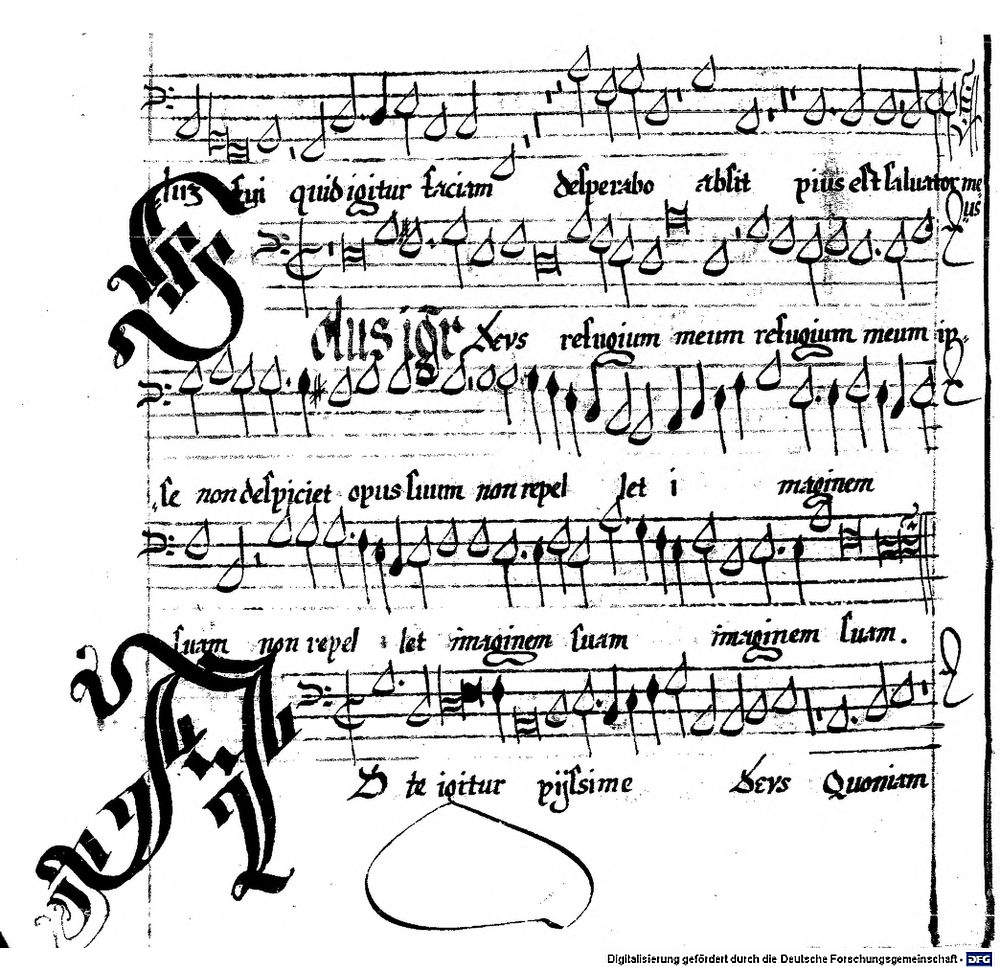 tuz tui quid igitur faciam desperabo absit pius est saluator me
us
Solus igr Deus refugium meum refugium meum ip„
se non despiciet opus suum non repel let i maginem
suam non repel let imaginem suam imaginem suam.
AD te igitur pijssime Deus Quoniam
Digitalisierung gefördert durch die Deutsche Forschungsgemeinschaft - DFG